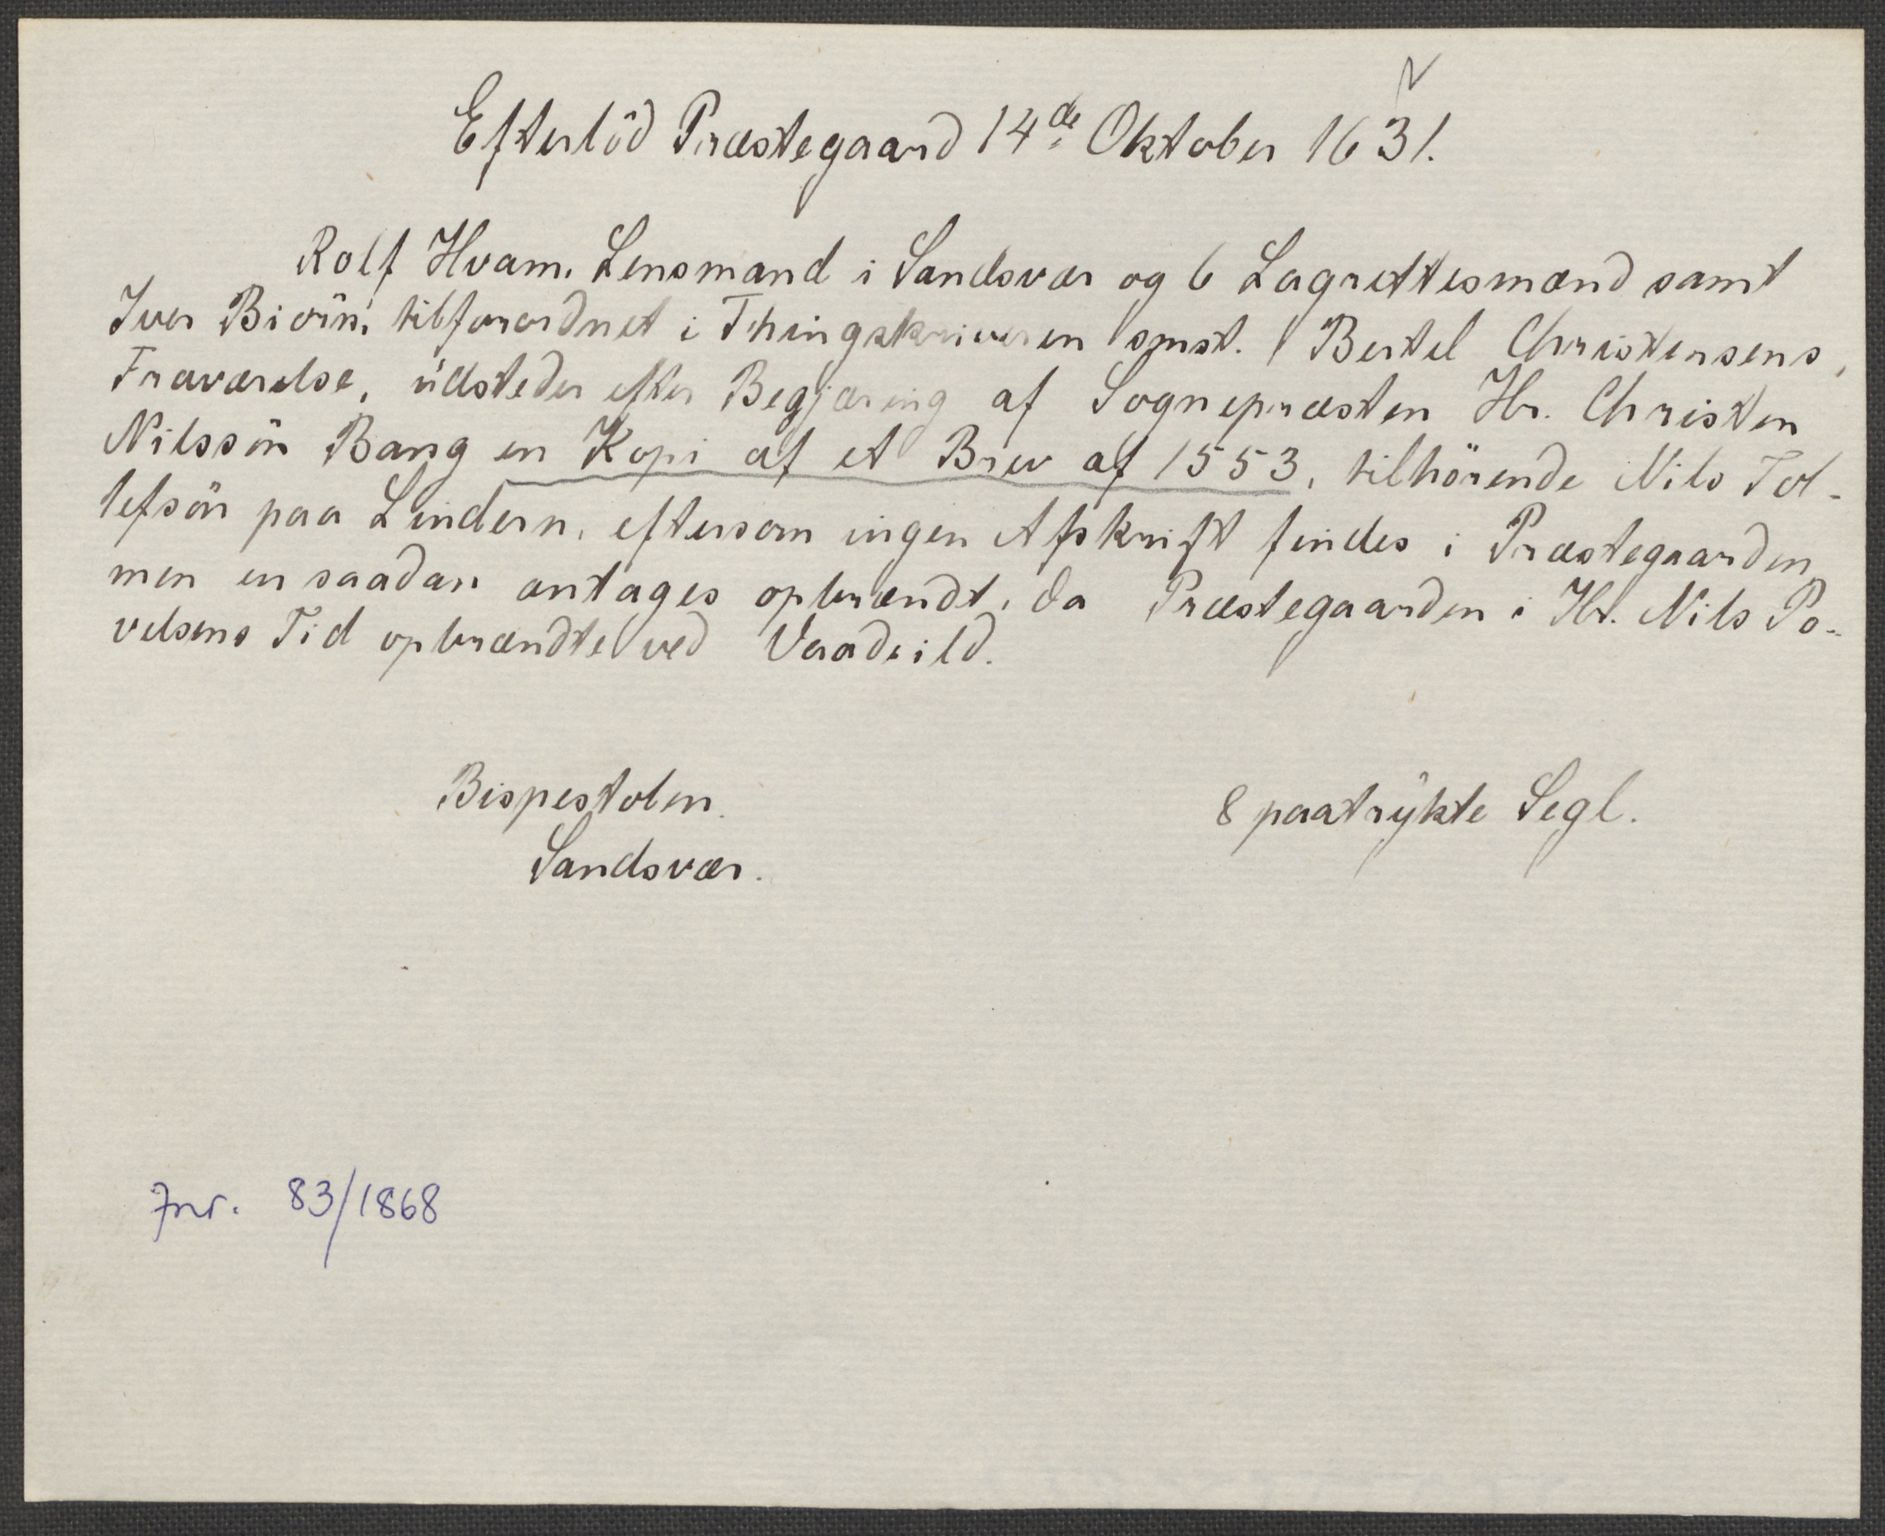 Efterlöd Præstegaard 14de Oktober 1631.
Rolf Hvam, Lensmand i Sandsvær og 6 Lagrettesmænd samt
Iver Biörn, tilforordnet i Thingskriveren smst. Bertel Christensens,
Fraværelse, üdsteder efter Begjæring af Sognepræsten Hr. Christen
Nilssön Bang en Kopi af et Brev af 1553, tilhörende Nils Tol-
lefsön paa Lindern, eftersom ingen Afskrift findes i Præstegaarden
men en saadan antages opbrændt, da Præstegaarden i Hr. Nils Po-
velsens Tid opbrændte ved Vaadeild.
Bispestolen.
8 paatrÿkte Segl.
Sandsvær.
Jnr. 83/1868